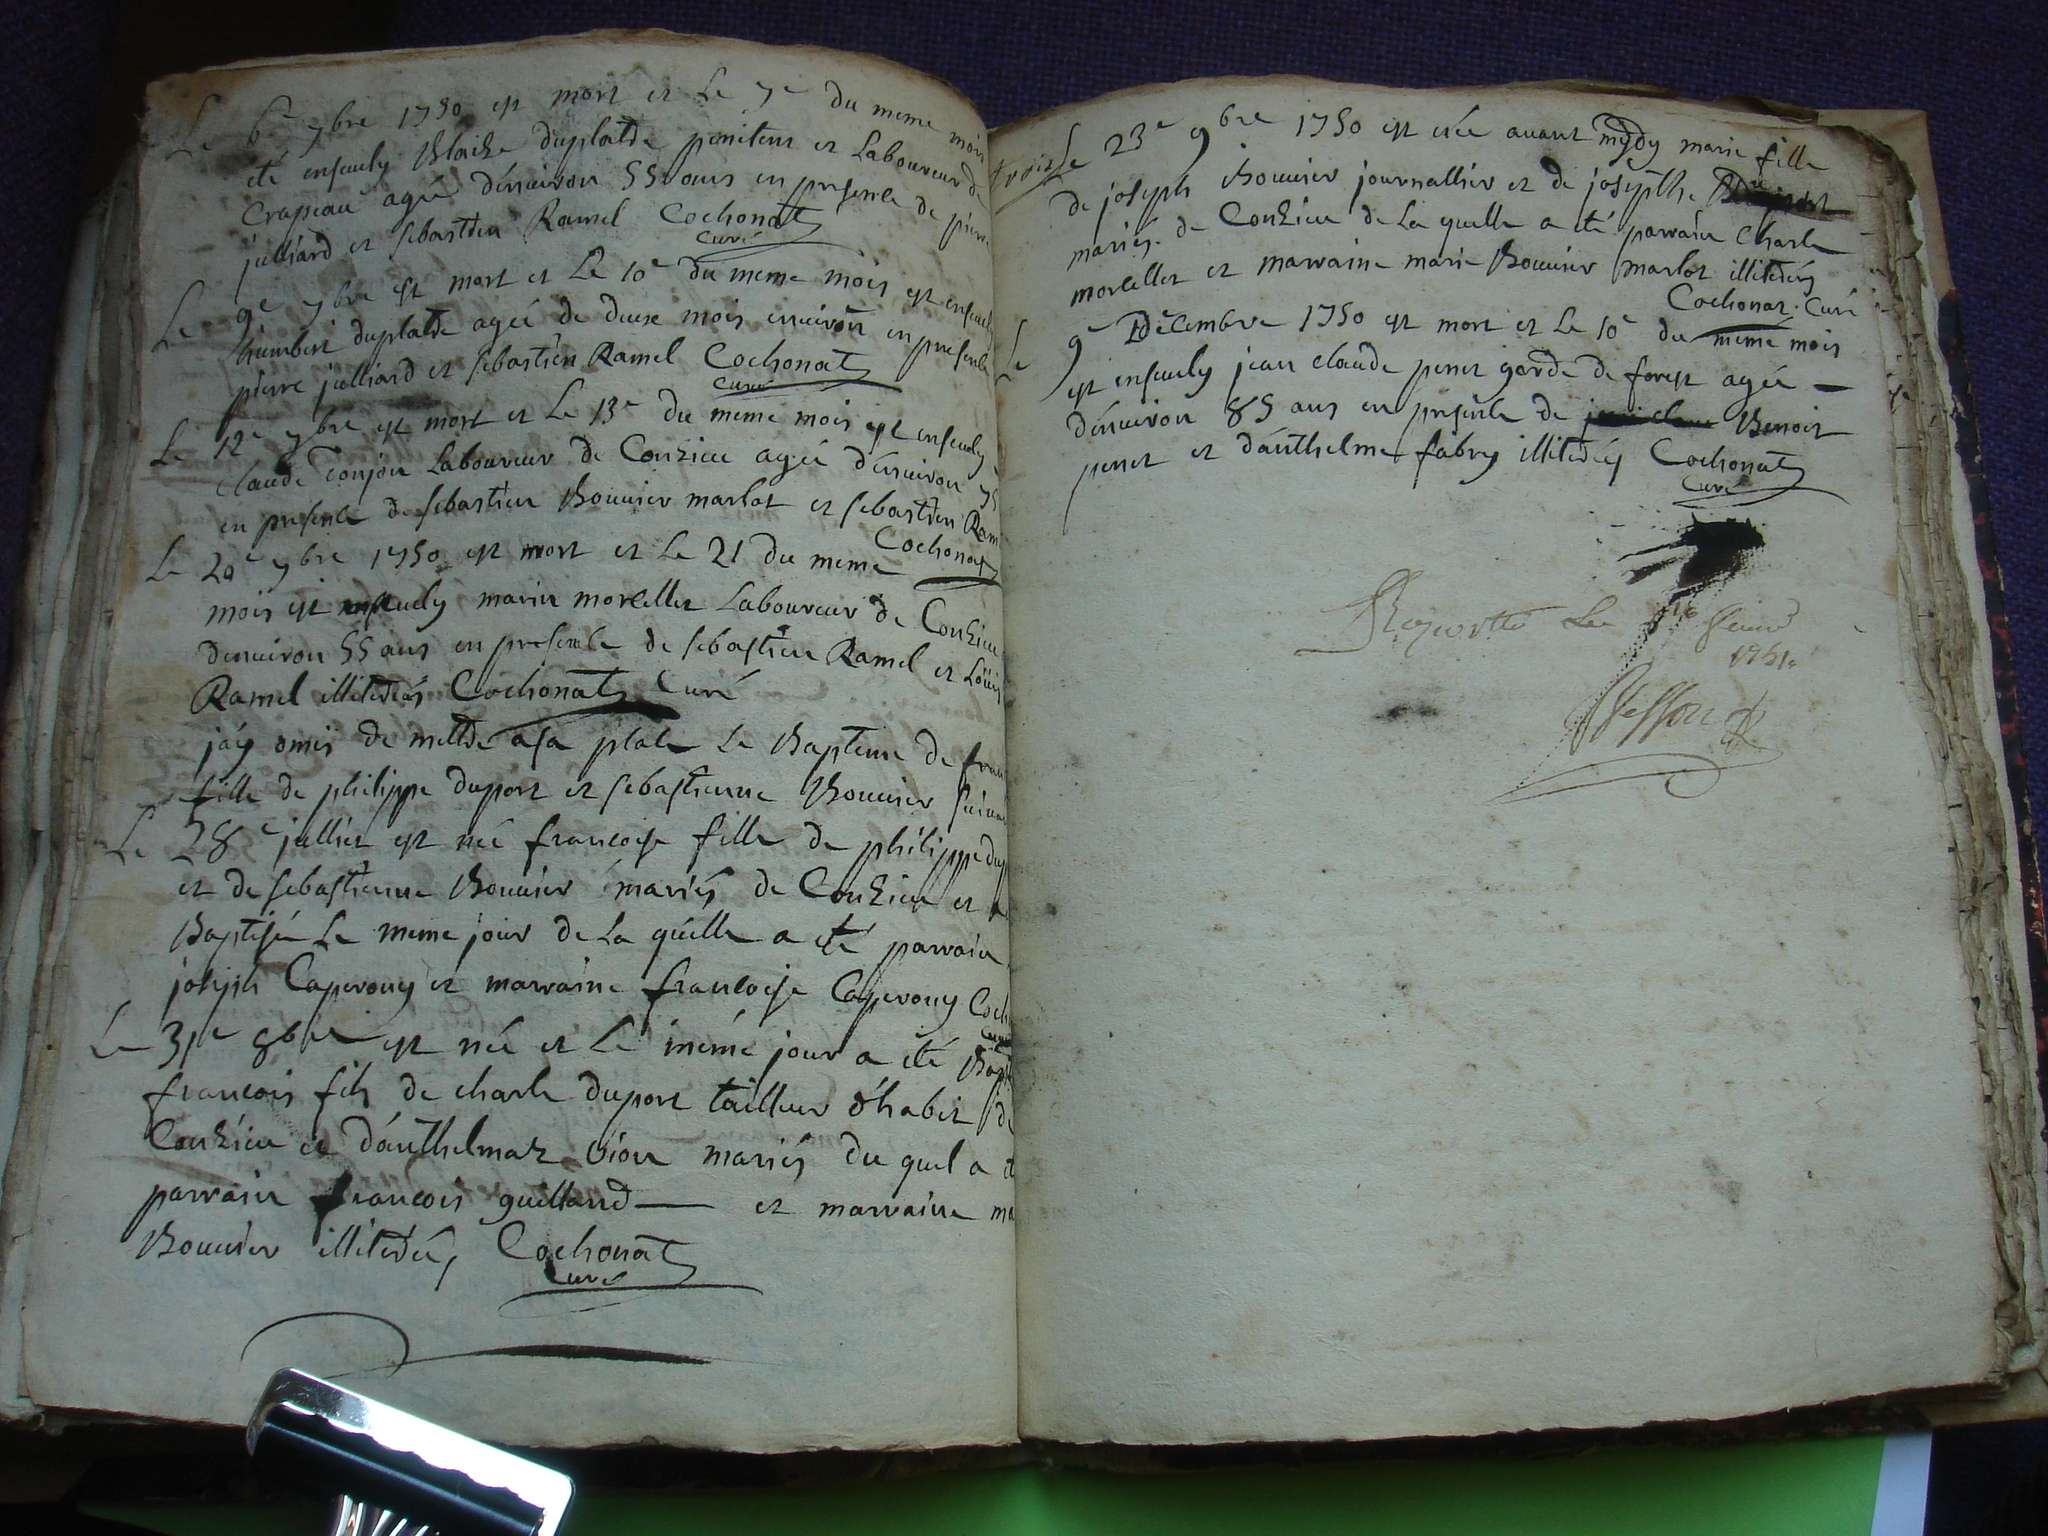 Le 6e 7bre 1750 est mort et Le 7e du meme mois
eté enseuely Blaise duplatre peniteur et Laboureur de
Crapeau agé d'enuiron 55 ans en presence de pierre
julliard et sebastien Ramel Cochonat
Curé
Le 9e 7bre est mort et Le 10e du meme mois est enseuely
humbert duplatre agée de deux mois enuiron en presence
pierre julliard et sebastien Ramel Cochonat
Curé
Le 12e 7bre est mort et Le 13e du meme mois est enseuely
Claude Conjon Laboureur de Conzieu agée d'enuiron 75
en presence de sebastien Bouuier marlot et sebastien Ram
Cochonat
Le 20e 7bre 1750 est mort et Le 21 du meme
mois est enseuely marin morellet Laboureur de Conzieu
denuiron 55 ans en presence de sebastien Ramel et Loüis
Ramel illiterés Cochonat Curé
j'ay omis de mettre a sa place Le Bapteme de fran
fille de philippe duport et sebastienne Bouuier
Le 28e jullier est née francoise fille de philippe dup
et de sebastienne Bouuier mariés de Conzieu et a
Baptisée Le meme jour de La quelle a eté parrain
joseph Caperony et marraine francoise Caperony Coch
Curé
Le 31e 8bre est née et Le meme jour a eté Bapt
francois fils de charle duport tailleur d'habit de
Conzieu et d'anthelmaz Bion mariés du quel a eté
parrain francois guilland — et marraine ma
Bouuier illiterée, Cochonat
Curé
Le 23e 9bre 1750 est née auant mydy marie fille
de joseph Bouuier journallier et de josephte
mariés de Conzieu de La quelle a eté parrain Charle
morellet et marraine marie Bouuier marlot illiterés
Cochonat Curé
Le 9e Decembre 1750 est mort et Le 10e du meme mois
est enseuely jean claude penet garde de forest agée —
d'enuiron 85 ans en presence de Benoit
penet et d'anthelme fabry illiterés Cochonat
Curé
1751